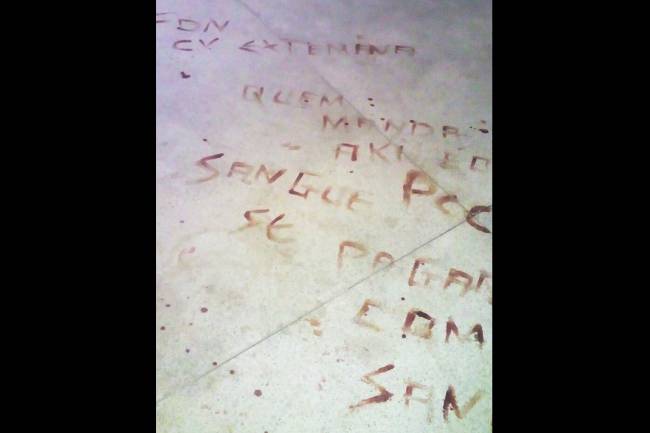 FDN
CV EXTEMINA
QUEM
MANDA
AKI É O
SANGUE PCC
SE PAGAR
COM
SAN